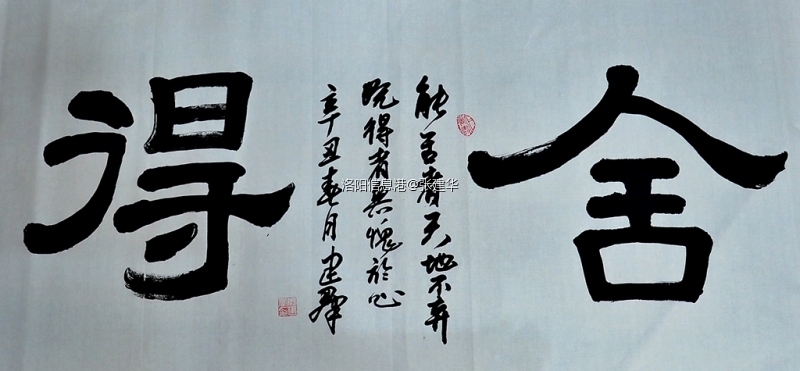 舍
能舍者天地不弃
既得者無愧於心
辛丑春月建華
得
洛阳信息港@张建华